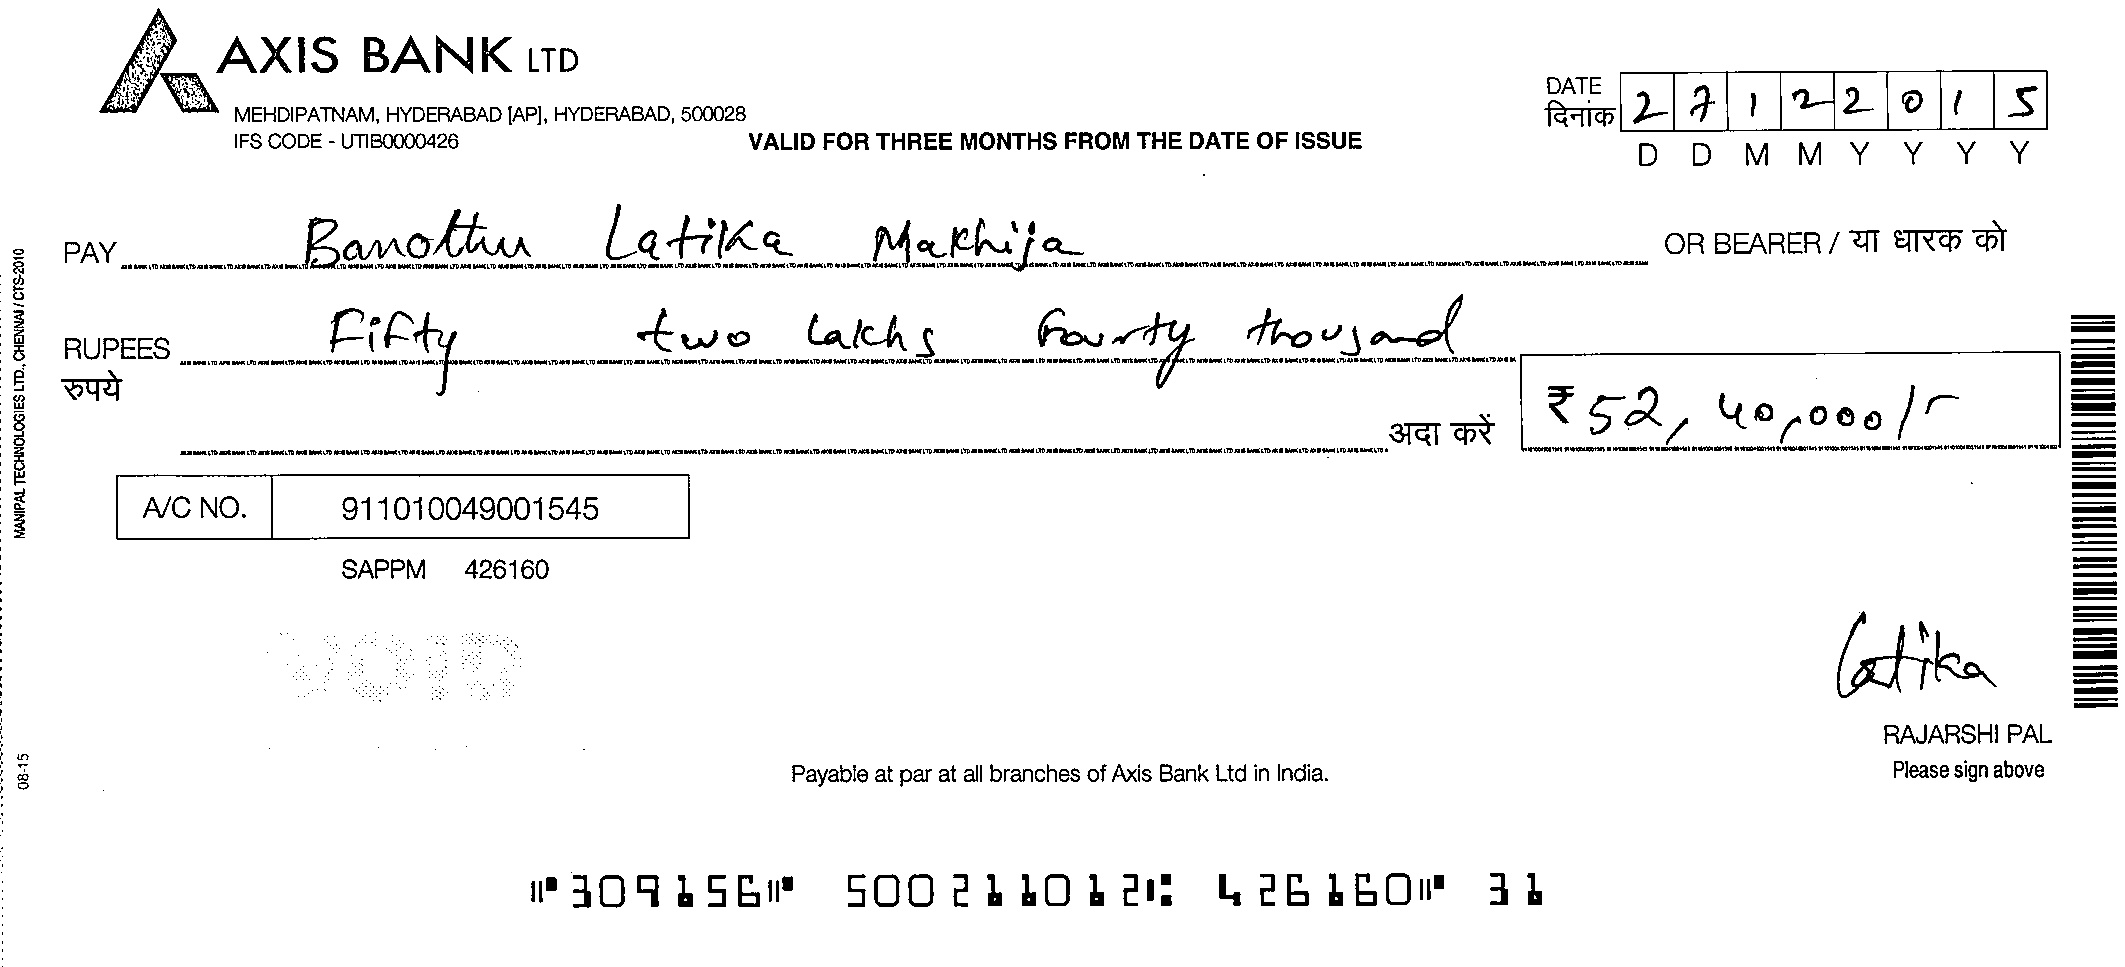 AXIS BANK LTD
MEHDIPATNAM, HYDERABAD [AP], HYDERABAD, 500028
IFS CODE - UTIB0000426
VALID FOR THREE MONTHS FROM THE DATE OF ISSUE
DATE
दिनांक
2 7 1 2 2 0 1 5
D D M M Y Y Y Y
PAY Banothu Latika Makhija OR BEARER / या धारक को
RUPEES Fifty two lakhs Fourty thousand
रुपये
अदा करें ₹ 52,40,000/-
A/C NO. 911010049001545
SAPPM 426160
VOID
Latika
RAJARSHI PAL
Please sign above
Payable at par at all branches of Axis Bank Ltd in India.
⑈309156⑈ 500211012⑆ 426160⑈ 31
MANIPAL TECHNOLOGIES LTD., CHENNAI / CTS-2010
08-15